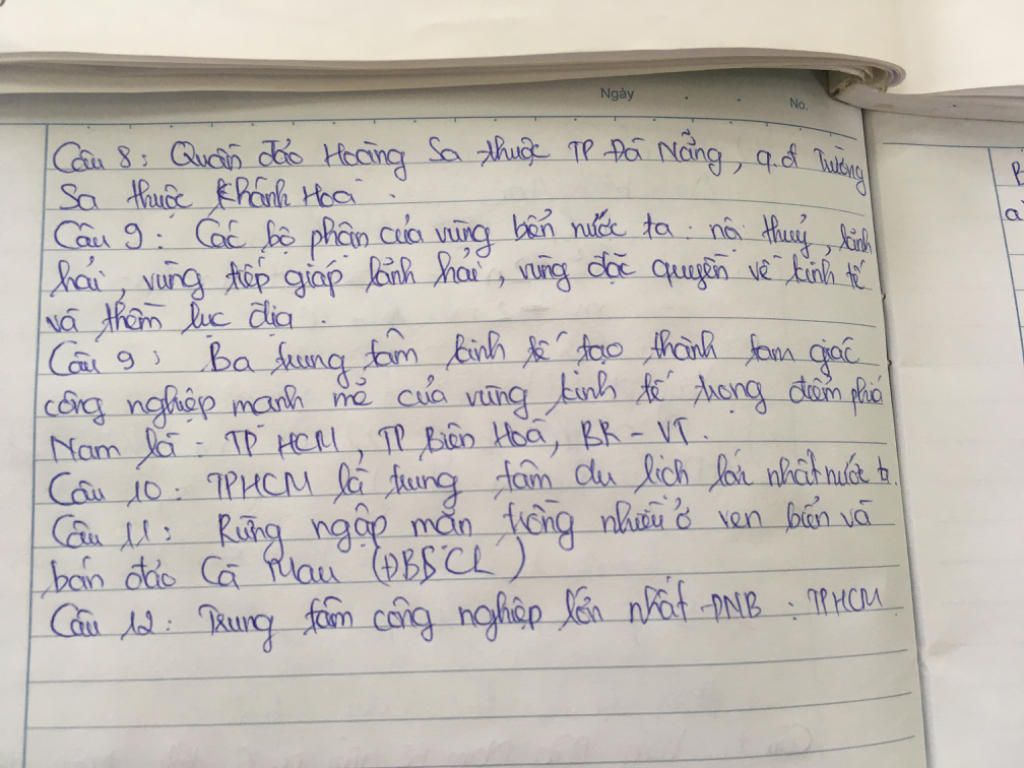 Ngày
No.
Câu 8: Quần đảo Hoàng Sa thuộc TP Đà Nẵng, q.đ Trường
Sa thuộc Khánh Hoà.
Câu 9: Các bộ phận của vùng biển nước ta: nội thuỷ, lãnh
hải, vùng tiếp giáp lãnh hải, vùng đặc quyền về kinh tế
và thềm lục địa.
Câu 9: Ba trung tâm kinh tế tạo thành tam giác
công nghiệp mạnh mẽ của vùng kinh tế trọng điểm phía
Nam là: TP HCM, TP Biên Hoà, BR-VT.
Câu 10: TPHCM là trung tâm du lịch lớn nhất nước ta.
Câu 11: Rừng ngập mặn trồng nhiều ở ven biển và
bán đảo Cà Mau (ĐBSCL)
Câu 12: Trung tâm công nghiệp lớn nhất ĐNB: TPHCM.